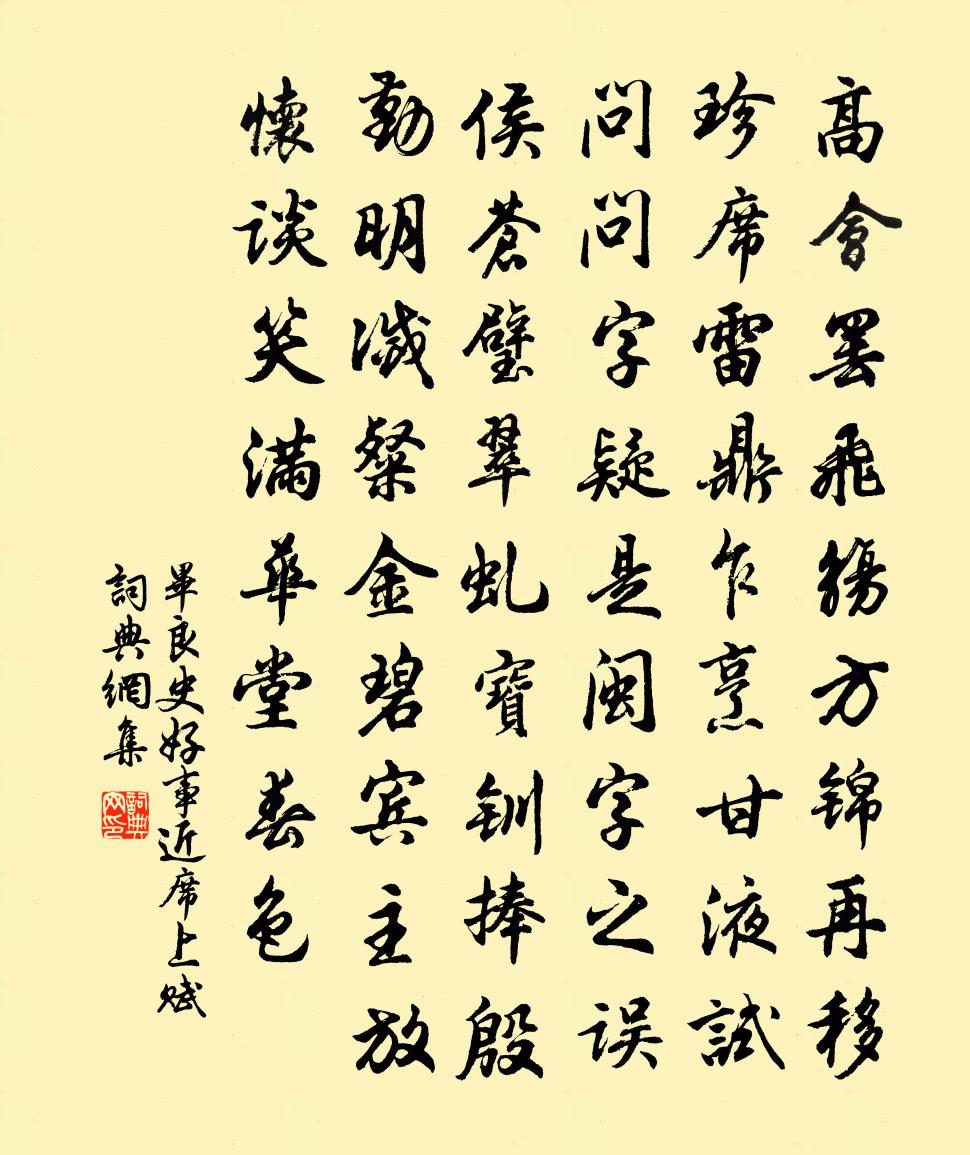 髙會罢飛觴方锦再移
珍席雷鼎乍烹甘液試
問問字疑是闽字之误
侯蒼璧翠虬寶钏捧殷
勤明滅粲金碧宾主放
懷談笑滿華堂春色
畢良史好事近席上赋
詞典網集
詞典网印